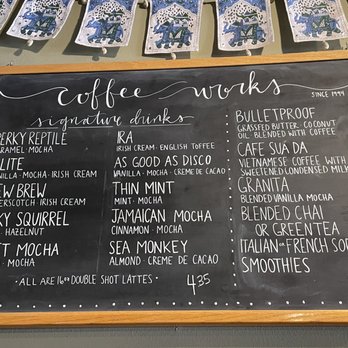 coffee works
SINCE 1999
signature drinks
PERKY REPTILE
CARAMEL · MOCHA
LITE
VANILLA · MOCHA · IRISH CREAM
BREW
BUTTERSCOTCH · IRISH CREAM
SQUIRREL
HAZELNUT
MOCHA
MOCHA
IRA
IRISH CREAM · ENGLISH TOFFEE
AS GOOD AS DISCO
VANILLA · MOCHA · CREME DE CACAO
THIN MINT
MINT · MOCHA
JAMAICAN MOCHA
CINNAMON · MOCHA
SEA MONKEY
ALMOND · CREME DE CACAO
· ALL ARE 16oz DOUBLE SHOT LATTES · 4.35
BULLETPROOF
GRASSFED BUTTER · COCONUT
OIL · BLENDED WITH COFFEE
CAFE SUA DA
VIETNAMESE COFFEE WITH
SWEETENED CONDENSED MILK
GRANITA
BLENDED VANILLA MOCHA
BLENDED CHAI
OR GREEN TEA
ITALIAN OR FRENCH SOD
SMOOTHIES